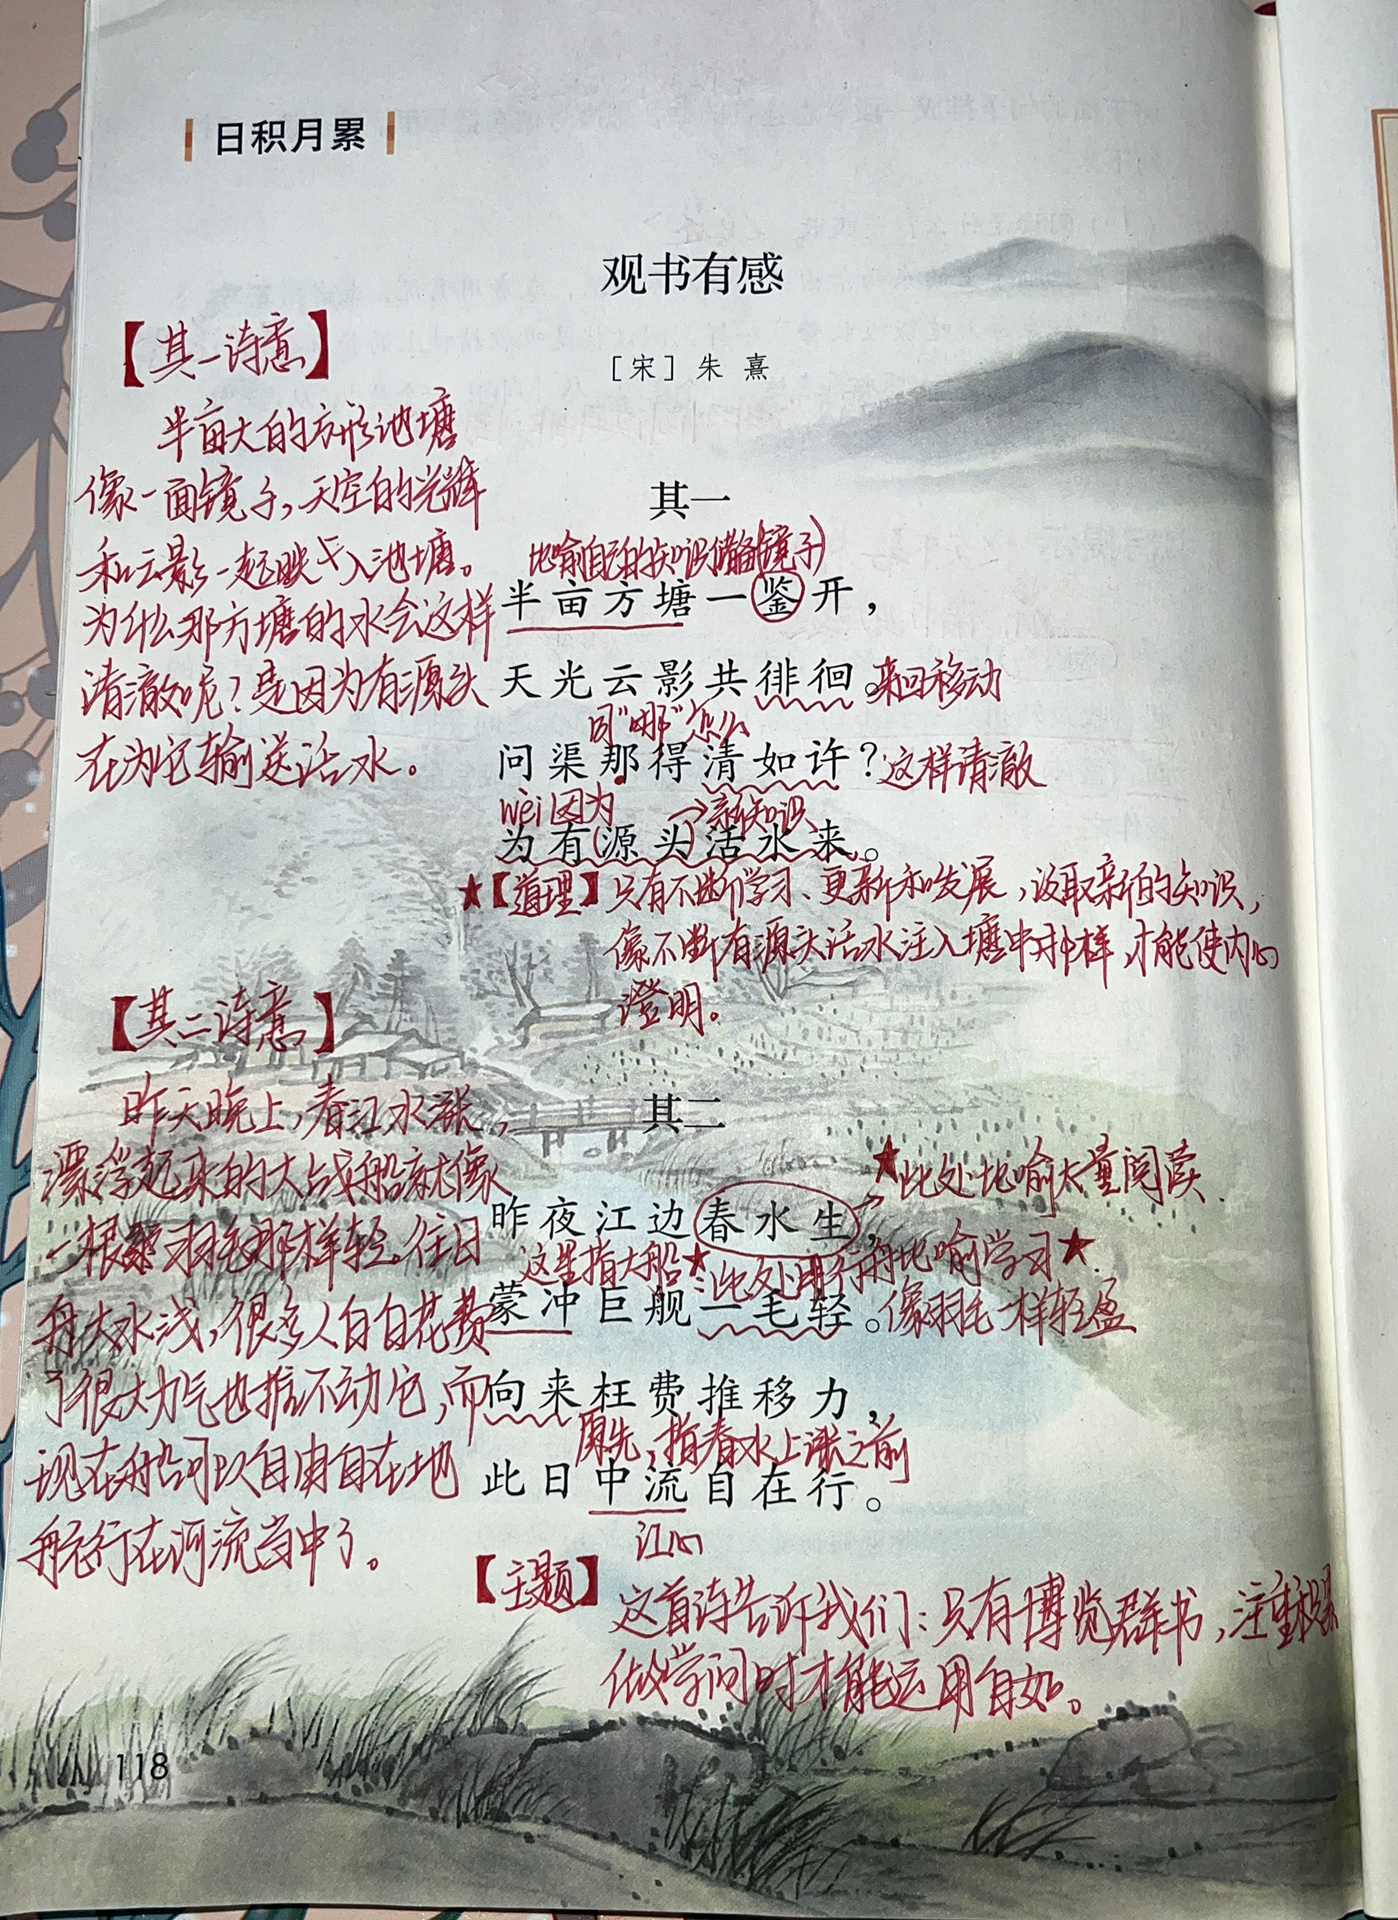 日积月累
观书有感
［宋］朱熹
【其一诗意】
半亩大的方形池塘
像一面镜子，天空的光辉
和云影一起映入池塘。
为什么那方塘的水会这样
清澈呢？是因为有源头
在为它输送活水。
其一
比喻自己的知识储备(镜子)
半亩方塘一鉴开，
天光云影共徘徊。来回移动
同“哪”怎么
问渠那得清如许？这样清澈
wèi因为 →新知识
为有(源头)活水来。
★【道理】只有不断学习、更新和发展，汲取新的知识，
像不断有源头活水注入塘中那样，才能使内心
澄明。
【其二诗意】
昨天晚上，春江水涨，
漂浮起来的大战船就像
一根羽毛那样轻。往日
舟大水浅，很多人白白花费
了很大力气也推不动它，而
现在船可以自由自在地
航行在河流当中了。
其二
★此处比喻大量阅读
昨夜江边春水生，
这里指大船★:此处用行舟比喻学习★
蒙冲巨舰一毛轻。像羽毛一样轻盈
向来枉费推移力，
原先，指春水上涨之前
此日中流自在行。
江心
【主题】这首诗告诉我们：只有博览群书，注重积累
做学问时才能运用自如。
118